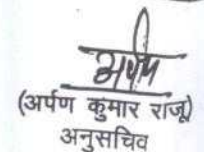 अर्पण
(अर्पण कुमार राजू)
अनुसचिव